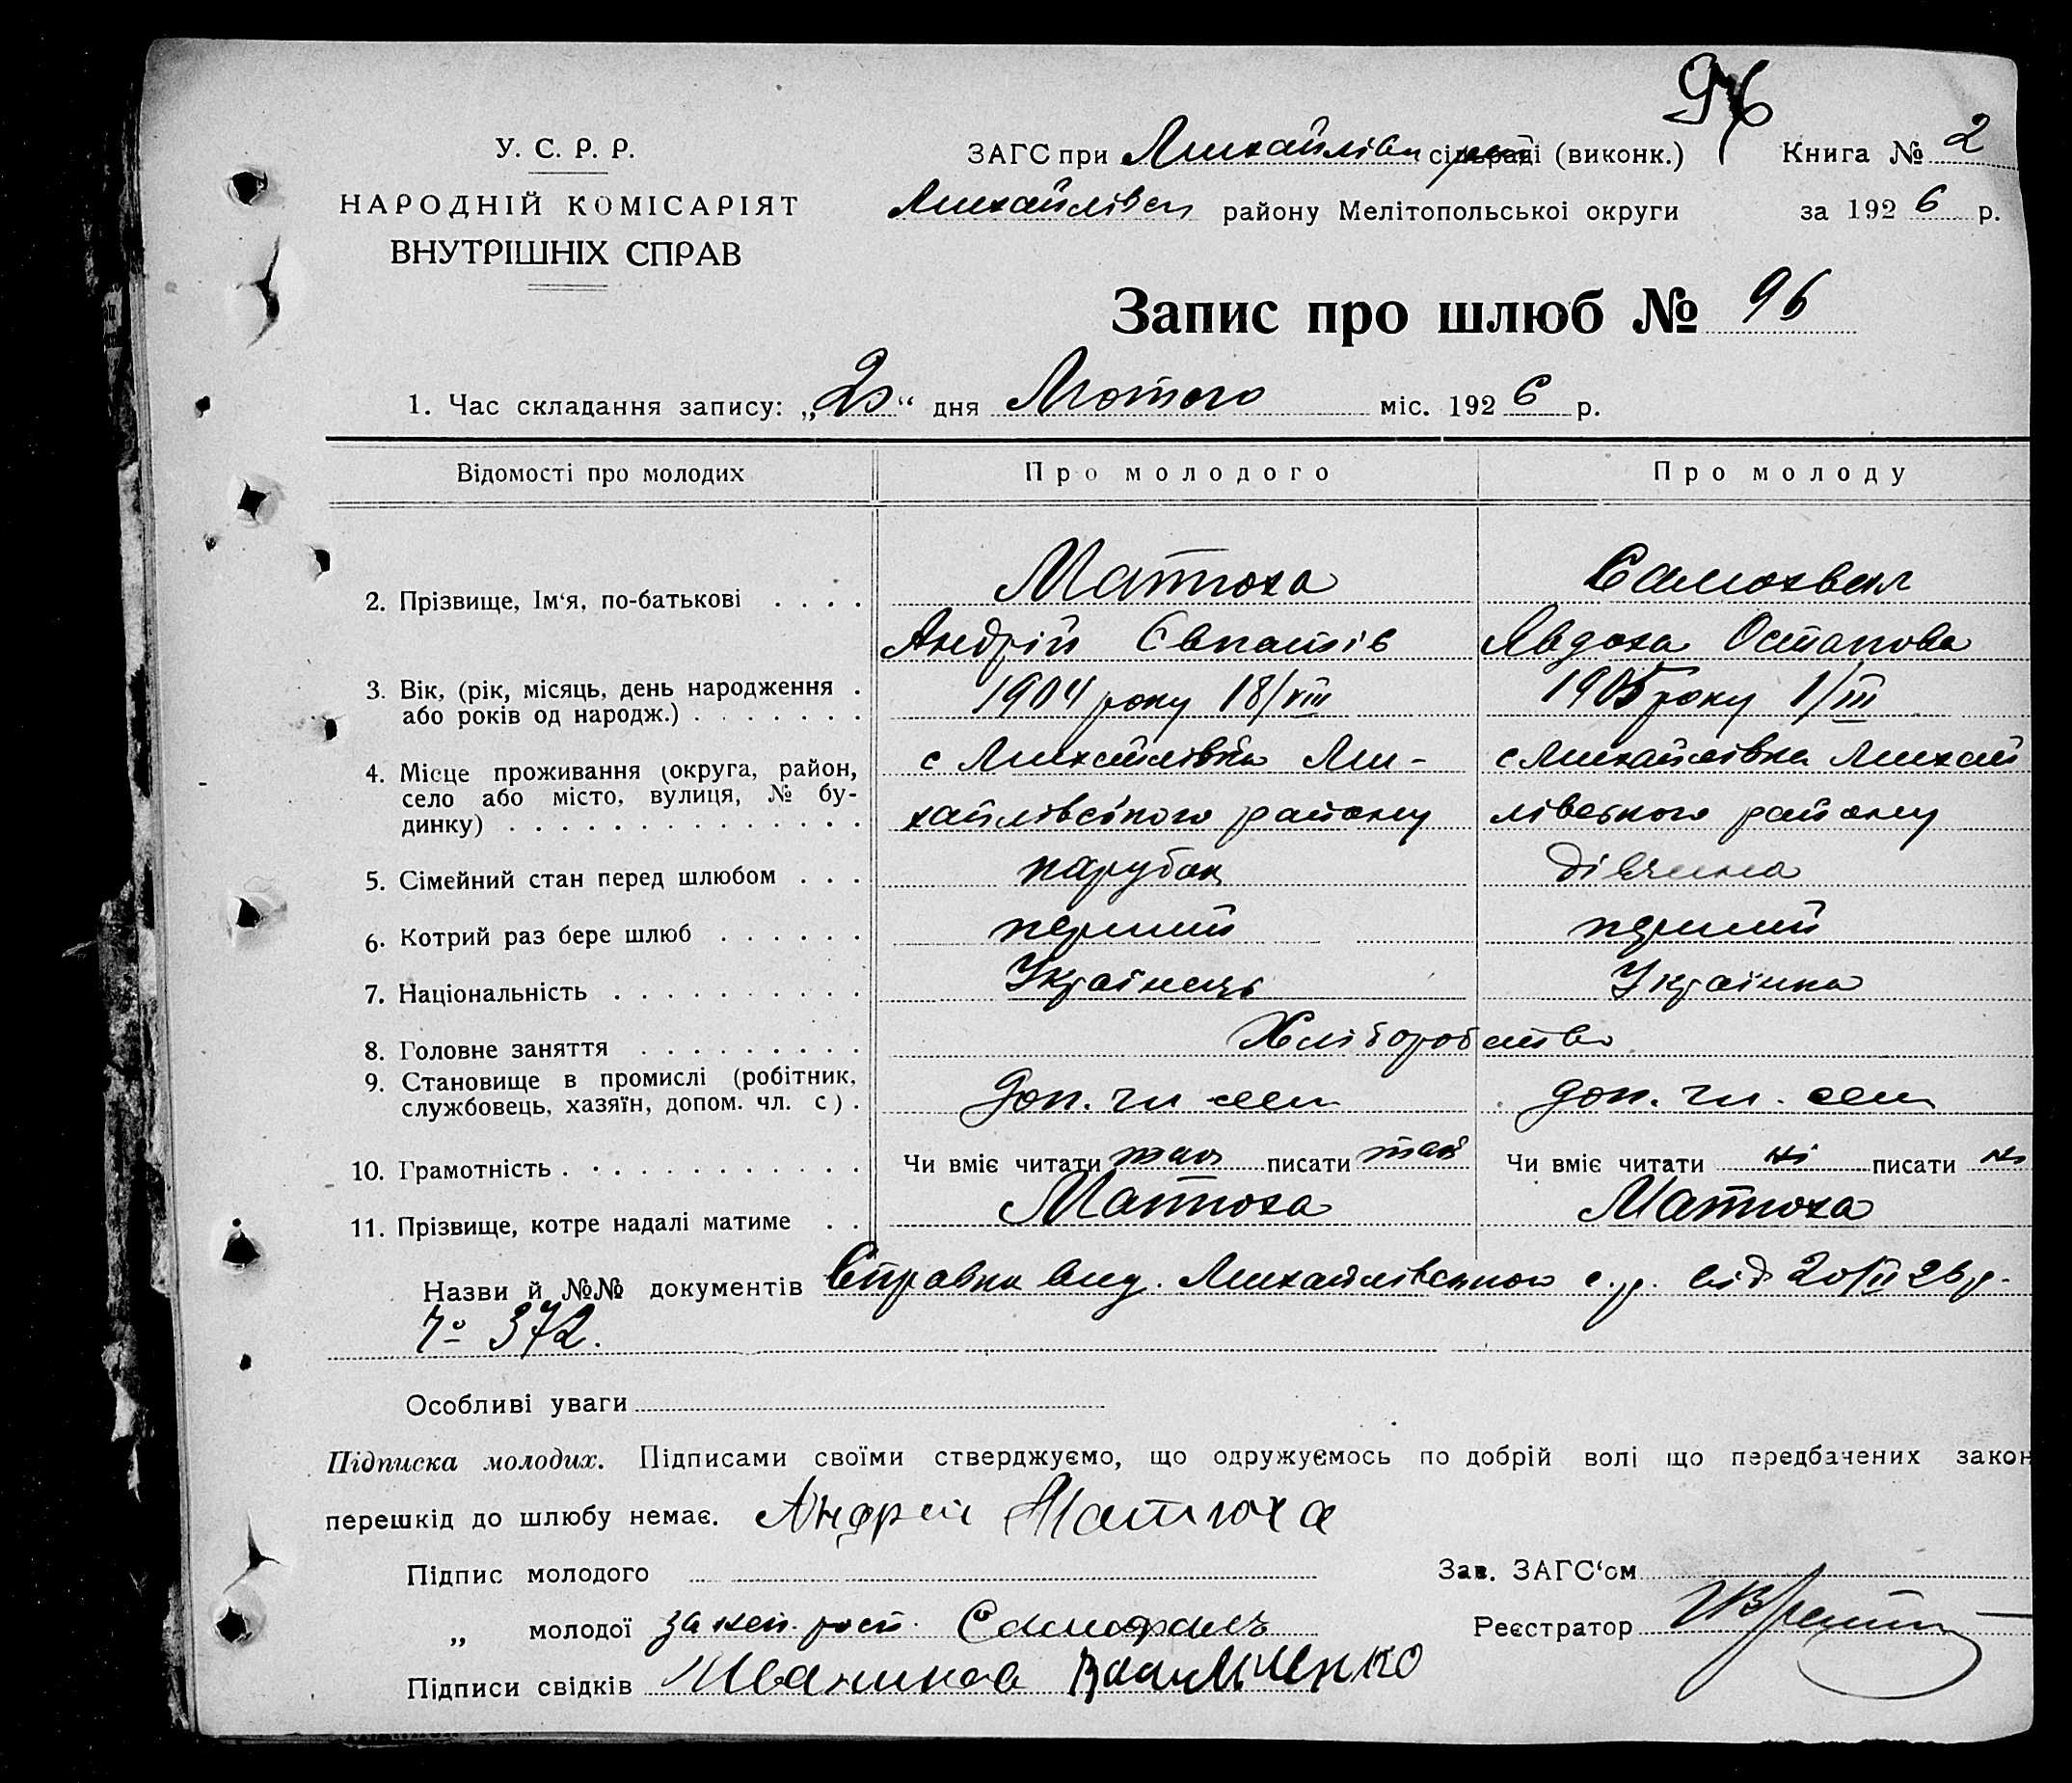 96
У. С. Р. Р.
НАРОДНІЙ КОМІСАРІЯТ
ВНУТРІШНІХ СПРАВ
ЗАГС при Михайлівськ сільраді (виконк.) Книга № 2
Михайлівськ району Мелітопольської округи за 1926 р.
Запис про шлюб № 96
1. Час складання запису: „20“ дня Лютого міс. 1926 р.
Відомості про молодих Про молодого Про молоду
2. Прізвище, Ім‘я, по-батькові . . . . Матюха Самохвал
Андрій Явдоха Остапова
3. Вік, (рік, місяць, день народження . 1904 року 18/VIII 1905 року 1/III
або років од народж.) . . . . . . .
4. Місце проживання (округа, район, с Михайлівка Ми- с Михайлівка Михай
село або місто, вулиця, № бу- хайлівського району лівського району
динку) . . . . . . . . . . . . . .
5. Сімейний стан перед шлюбом . . . парубок дівчина
6. Котрий раз бере шлюб . . . . . . перший перший
7. Національність . . . . . . . . . . Українець Українка
8. Головне заняття . . . . . . . . . Хліборобство
9. Становище в промислі (робітник, доп. чл. сем доп. чл. сем
службовець, хазяїн, допом. чл. с) .
10. Грамотність . . . . . . . . . . . . Чи вміє читати так писати так Чи вміє читати ні писати ні
11. Прізвище, котре надалі матиме . . Матюха Матюха
Назви й №№ документів Справка вид. Михайлівською с.р. від 20/II 26 р.
№ 372.
Особливі уваги
Підписка молодих. Підписами своїми стверджуємо, що одружуємось по добрій волі що передбачених закон
перешкід до шлюбу немає. Андрей Матюха
Підпис молодого Зав. ЗАГС‘ом
„ молодої за неп. росп. Реєстратор
Підписи свідків